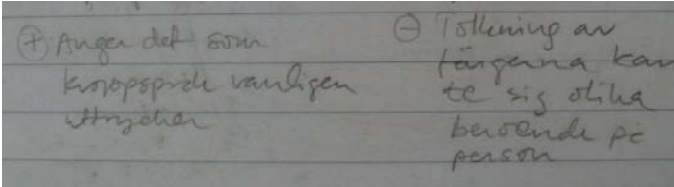 ⊕ Anger det som
kroppspråk vanligen
uttrycker
⊖ Tolkning av
färgerna kan
te sig olika
beroende på
person